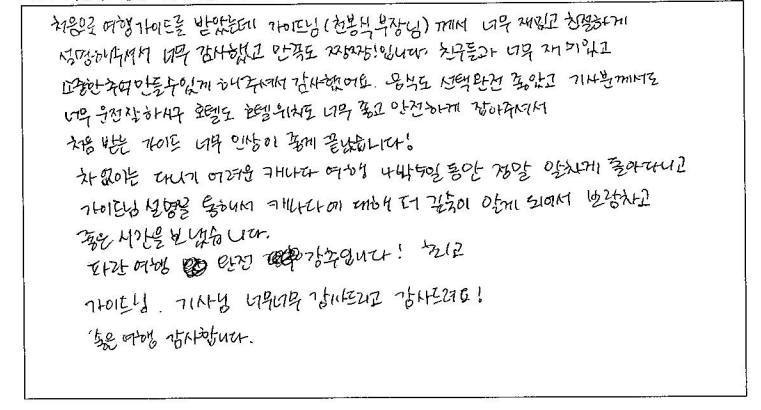 처음으로 여행가이드를 받았는데 가이드님(천봉식 부장님)께서 너무 재밌고 친절하게
설명해주셔서 너무 감사했고 만족도 짱짱!입니다. 친구들과 너무 재미있고
소중한추억만들수있게 해주셔서 감사했어요. 음식도 선택완전 좋았고 기사분께서도
너무 운전잘하시구 호텔도 호텔위치도 너무 좋고 안전하게 잡아주셔서
처음 받는 가이드 너무 인상이 좋게 끝났습니다!
차 없이는 다니기 어려운 캐나다 여행 4박5일동안 정말 알차게 돌아다니고
가이드님 설명을 통해서 캐나다에 대해 더 깊숙이 알게 되어서 보람차고
좋은 시간을 보냈습니다.
파란여행 완전 강추입니다! 그리고
가이드님, 기사님 너무너무 감사드리고 감사드려요!
좋은 여행 감사합니다.